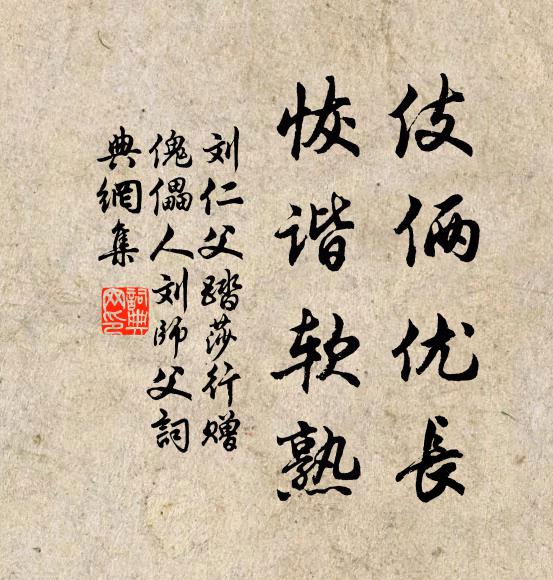 伎俩优长
恢谐软熟
刘仁父踏莎行赠
傀儡人刘师父詞
典網集
詞典
网印